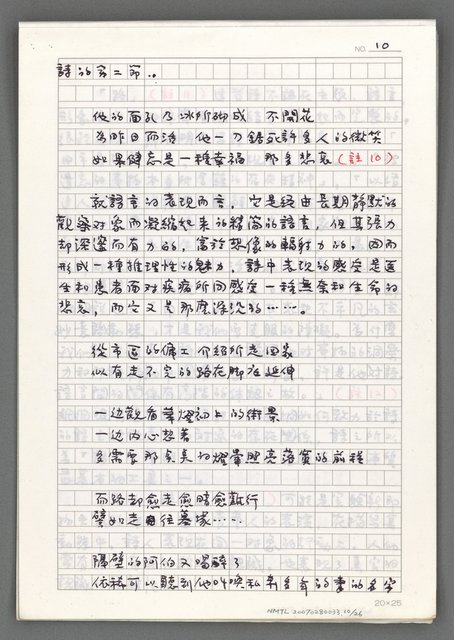 NO. 10
詩的第二節..
他的面孔乃冰所砌成 不開花
為昨日而活 他一刀鋸死許多人的微笑
如果健忘是一種幸福 那多悲哀(註10)
就語言的表現而言,它是經由長期靜默的
觀察对象而凝縮起來的精簡的語言,但其張力
却深邃而有力的,富於想像的輻射力的,因而
形成一種推理性的魅力,詩中表現的感受是医
生和患者面对疾病所同感受一種無奈和生命的
悲哀,而它又是那麼深沒的……。
從市區的傭工介紹所走回家
似有走不完的路在脚底延伸
一边觀看華燈初上的街景
一边內心想著
多需要那貞亮的燈暈照亮落寞的前程
而路却愈走愈暗愈難行
譬如走往墓塚……
隔壁的阿伯又喝醉了
依稀可以聽到他叫喚私奔多年的妻的名字
NMTL 20070280033.10/26
20×25